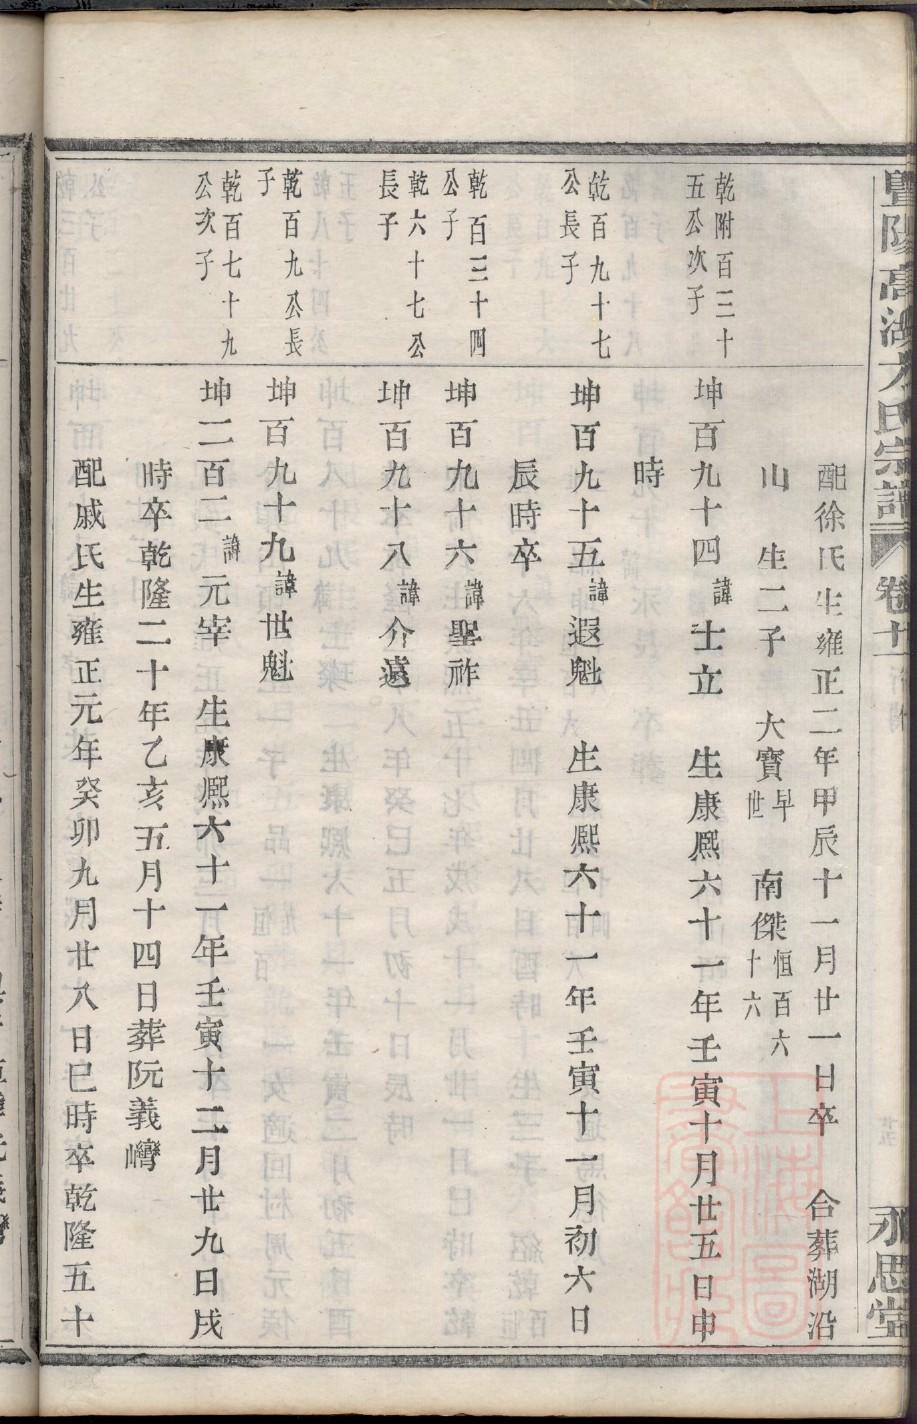 暨陽高湖方氏宗譜 卷十一 永思堂
配徐氏生雍正二年甲辰十一月廿一日卒 合葬湖沿
山 生二子 大寶早世 南傑恒百六十六
乾附百三十五公次子
坤百九十四諱士立 生康熙六十一年壬寅十月廿五日申
時
乾百九十七公長子
坤百九十五諱遐魁 生康熙六十一年壬寅十一月初六日
辰時卒
乾百三十四公子
坤百九十六諱聖祚
乾六十七公長子
坤百九十八諱介遠
乾百九公長子
坤百九十九諱世魁
乾百七十九公次子
坤二百二諱元宰 生康熙六十一年壬寅十二月廿九日戌
時卒乾隆二十年乙亥五月十四日葬阮義灣
配戚氏生雍正元年癸卯九月廿八日巳時卒乾隆五十